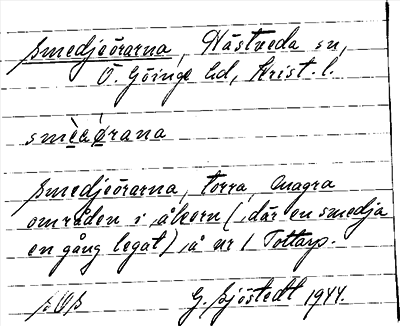 smedjeörarna, Hästveda sn,
Ö. Göinge hd, Krist. l.
smèeǿrana
smedjeörarna, torra, magra
områden i åkern (där en smedja
en gång legat) å nr 1 Tottarp.
G. Sjöstedt 1944.